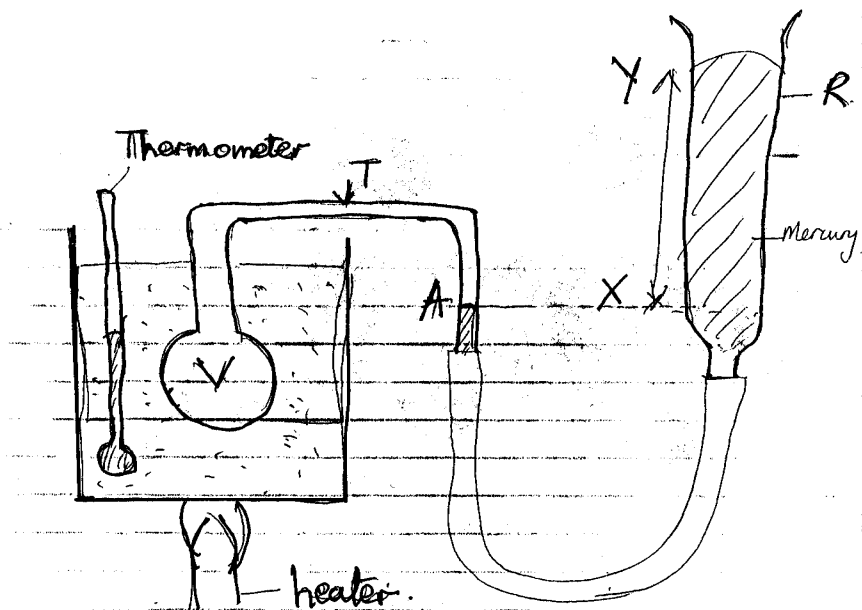 Y
R
Thermometer
T
Mercury
A
X
V
heater.